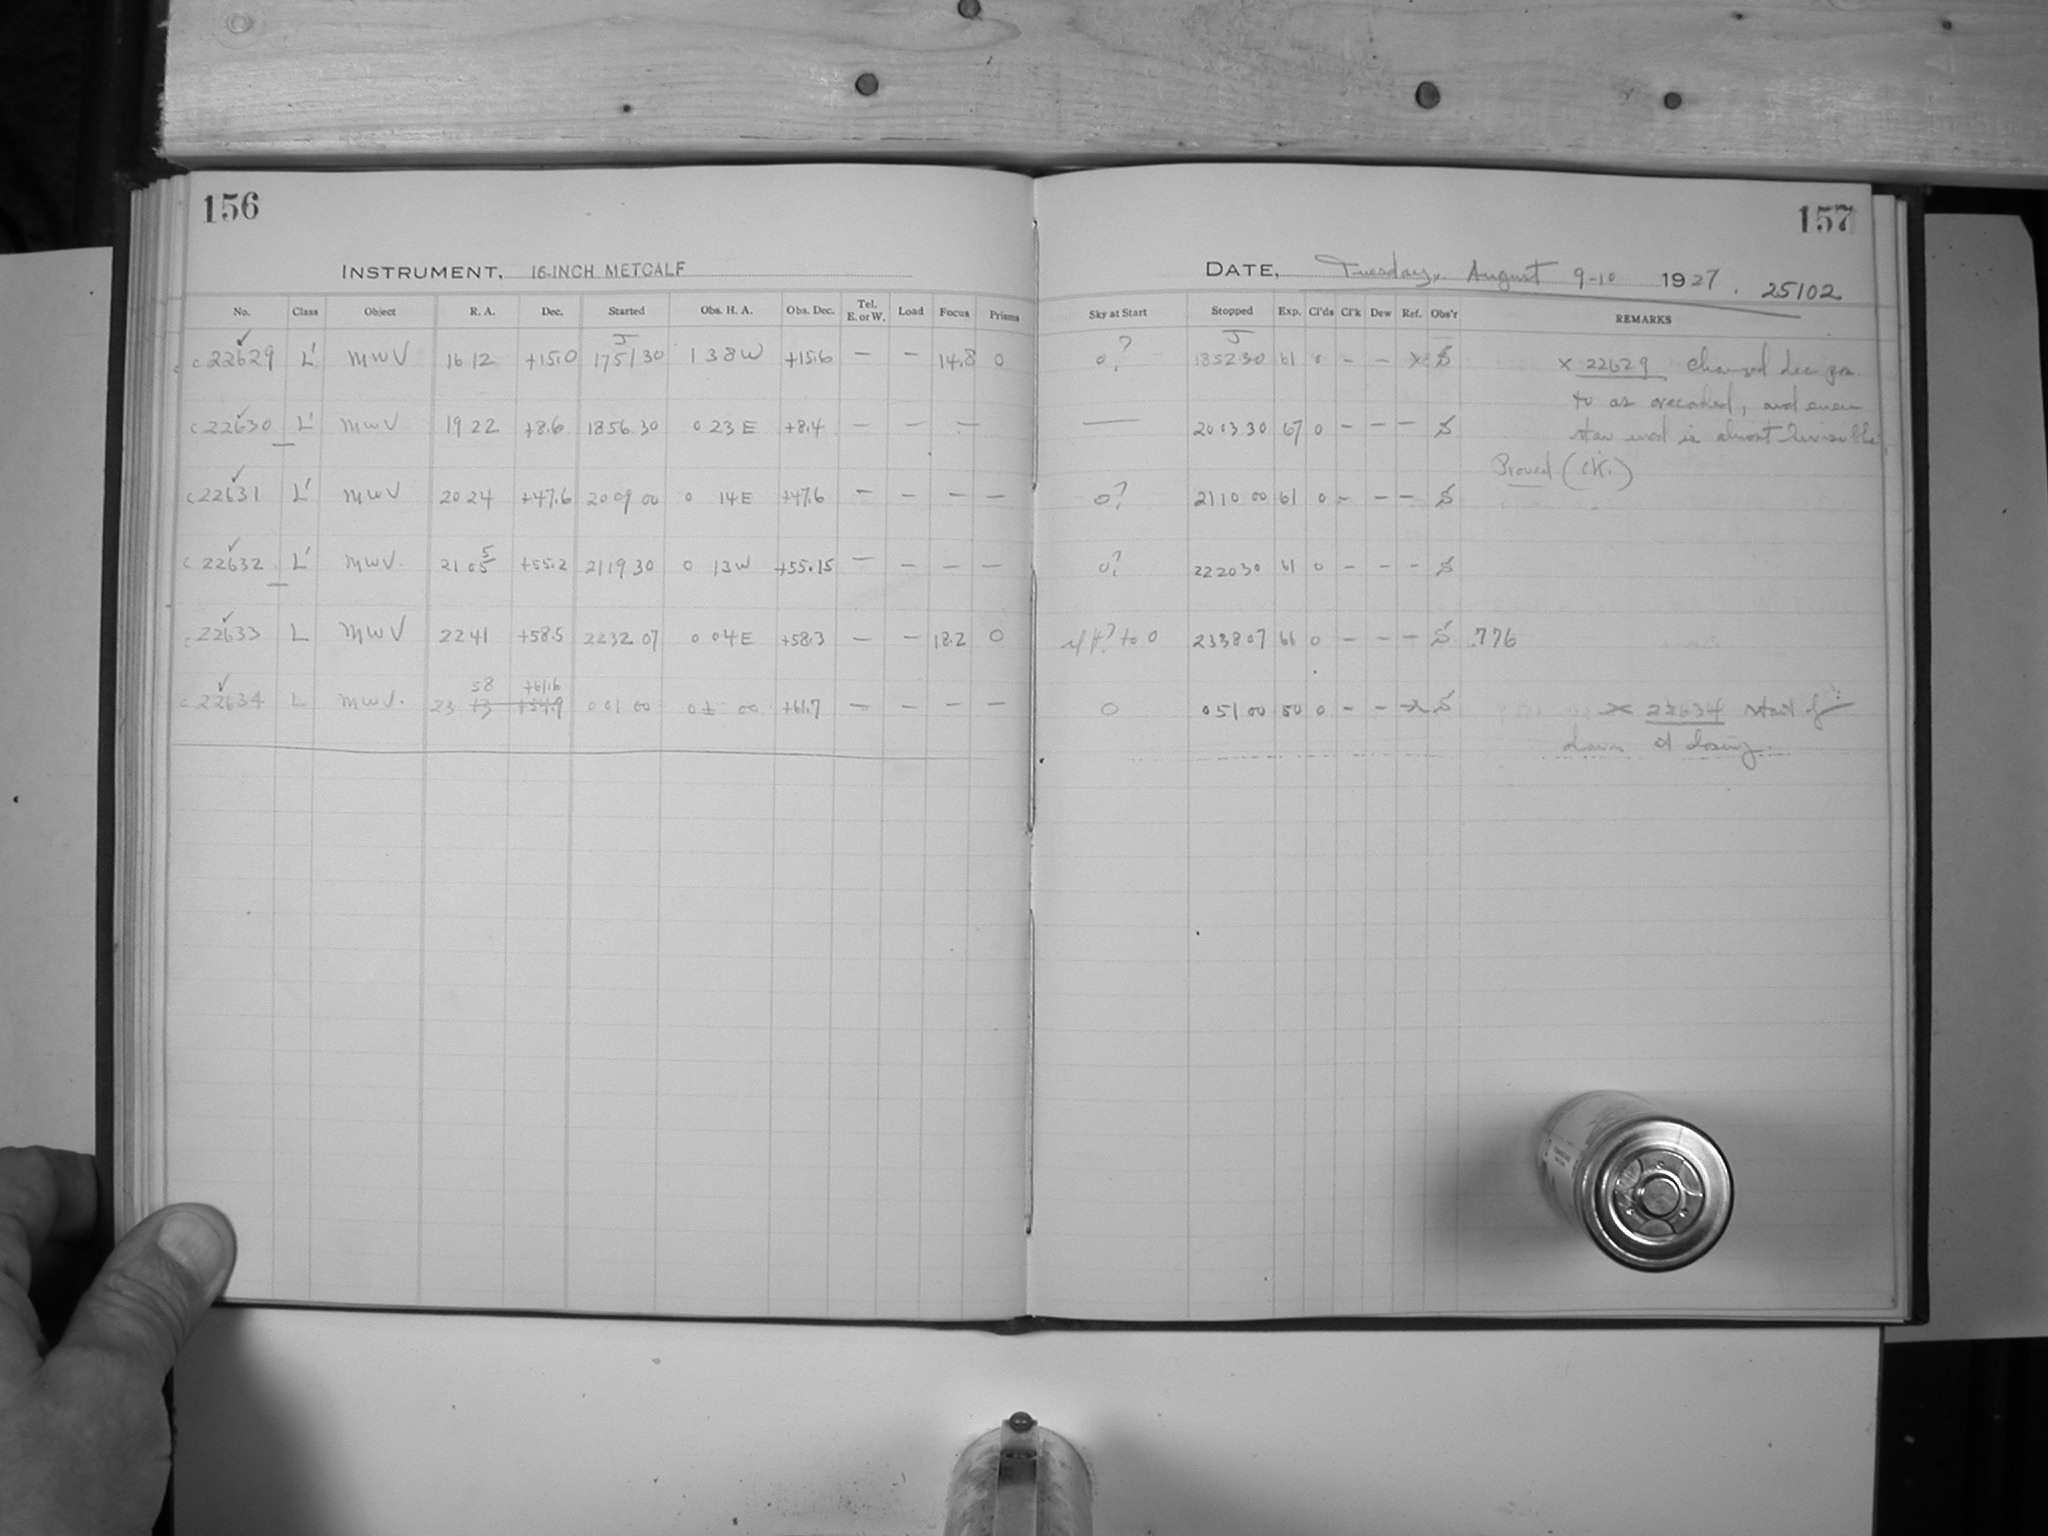 156
157
INSTRUMENT, 16-INCH METCALF
DATE, Tuesday, August 9-10 1927. 25102
No. Class Object R. A. Dec. Started Obs. H. A. Obs. Dec. Tel. E. or W. Load Focus Prisms Sky at Start Stopped Exp. Cl'ds Cl'k Dew Ref. Obs'r REMARKS
J J
c 22629 L' MWV 16 12 +15.0 17 51 30 1 38 W +15.6 — — 14.8 0 0? 18 52 30 61 0 – – x S x 22629 changed dec from
to as recorded, and even
c 22630 L' MWV 19 22 +8.6 18 56 30 0 23 E +8.4 — — — — 20 03 30 67 0 – – – S star used is almost invisible
Proved (CK.)
c 22631 L' MWV 20 24 +47.6 20 09 00 0 14 E +47.6 — — — — 0? 21 10 00 61 0 – – – S
5
c 22632 L' MWV. 21 05 +55.2 21 19 30 0 13 W +55.15 — — — — 0? 22 20 30 61 0 – – – S
c 22633 L MWV 22 41 +58.5 22 32 07 0 04 E +58.3 — — 18.2 0 to 0 23 38 07 66 0 – – – S .776
58 +61.6
c 22634 L MWV. 23 13 +54.9 0 01 00 0 ± 00 +61.7 — — — — 0 0 51 00 50 0 – – x S x 22634 start of
dawn at closing.